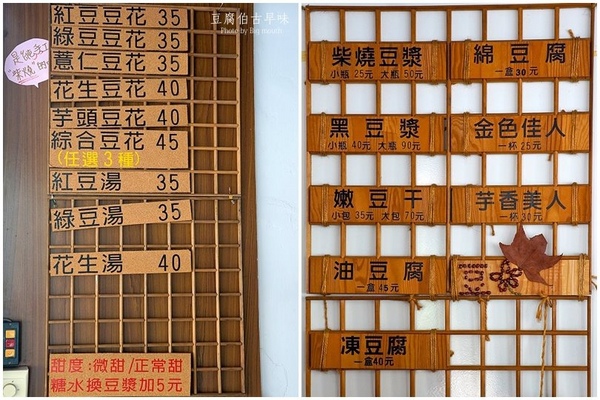 紅豆豆花 35
綠豆豆花 35
薏仁豆花 35
花生豆花 40
芋頭豆花 40
綜合豆花 45
(任選3種)
紅豆湯 35
綠豆湯 35
花生湯 40
甜度:微甜/正常甜
糖水換豆漿加5元
豆腐伯古早味
Photo by Big mouth
柴燒豆漿
小瓶25元 大瓶50元
黑豆漿
小瓶40元 大瓶90元
嫩豆干
小包35元 大包70元
油豆腐
一盒45元
凍豆腐
一盒40元
綿豆腐
一盒30元
金色佳人
一杯25元
芋香美人
一杯30元